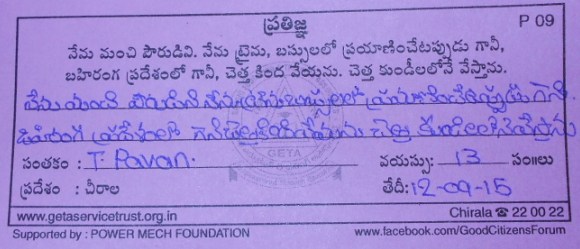 ప్రతిజ్ఞ P 09
నేను మంచి పౌరుడిని. నేను ట్రైను, బస్సులలో ప్రయాణించేటప్పుడు గానీ,
బహిరంగ ప్రదేశంలో గానీ, చెత్త కింద వేయను. చెత్త కుండీలలోనే వేస్తాను.
నేను మంచి పౌరుడిని నేను ట్రైను బస్సులలో ప్రయాణించేటప్పుడు గానీ
బహిరంగ ప్రదేశంలో గానీ చెత్త కింద వేయను చెత్త కుండీలలోనే వేస్తాను
సంతకం : T. Pavan. వయస్సు: 13 సం॥లు
ప్రదేశం : చీరాల తేదీ: 12-09-15
GETA
www.getaservicetrust.org.in Chirala ☎ 22 00 22
Supported by : POWER MECH FOUNDATION www.facebook.com/GoodCitizensForum